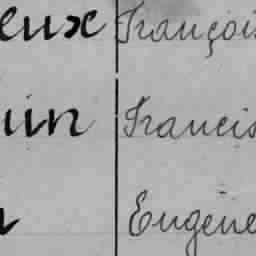 eux Françoi
uin Francis
Eugène